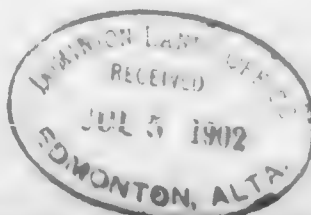 DOMINION LAND OFFICE
RECEIVED
JUL 5 1902
EDMONTON, ALTA.